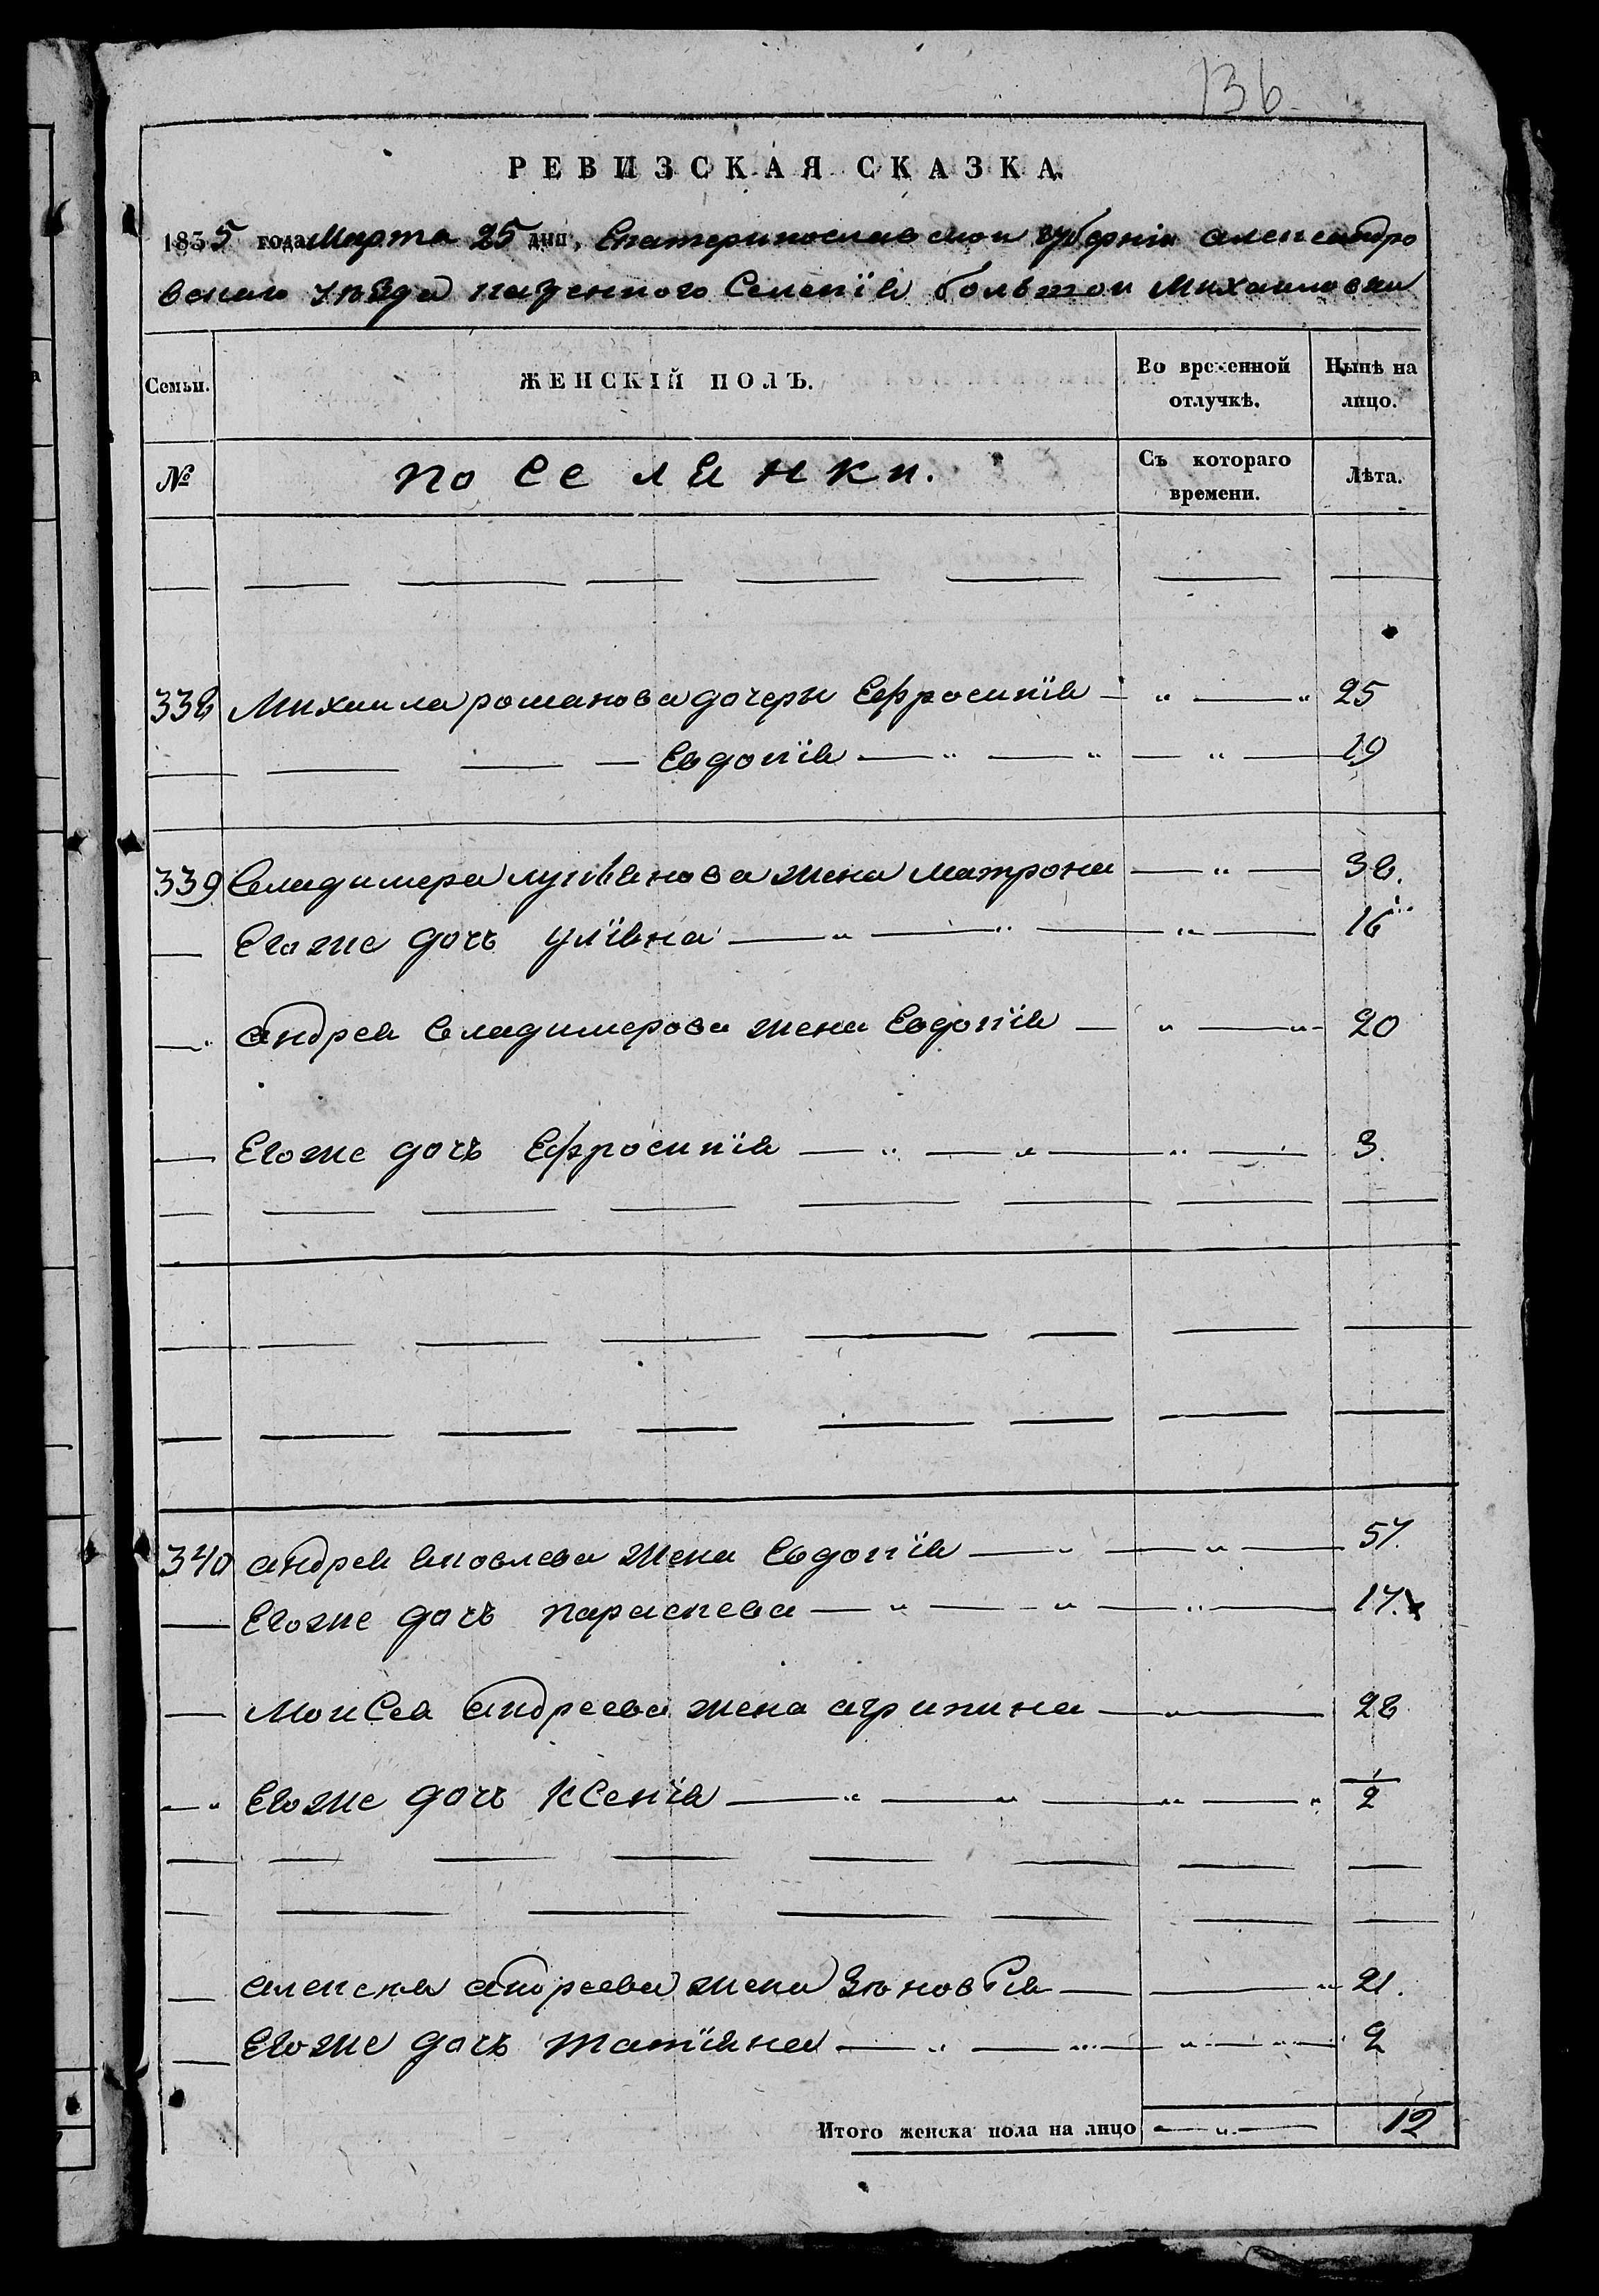 136
РЕВИЗСКАЯ СКАЗКА
1835 года Марта 25 дня, Екатеринославской губерніи александро
вскаго уѣзда казенного Селенія большой Михаиловки
Семьи. ЖЕНСКІЙ ПОЛЪ. Во временной отлучкѣ. Нынѣ на лицо.
№ поселянки. Съ котораго времени. Лѣта.
338 Михаила романова дочери Ефросинія 25
Евдокія 19
339 Владимера лукіянова жена матрона 38.
Егоже дочь уліяна 16
андрея владимерова жена Евдокія 20
Егоже дочь Ефросинія 3.
340 андрея яковлева жена Евдокія 57.
Егоже дочь параскева 17.
Моисея андреева жена агрипина 28
Егоже дочь Ксенія 1/2
алексея андреева жена Зѣновія 21.
Егоже дочь татіяна 2
Итого женска пола на лицо 12